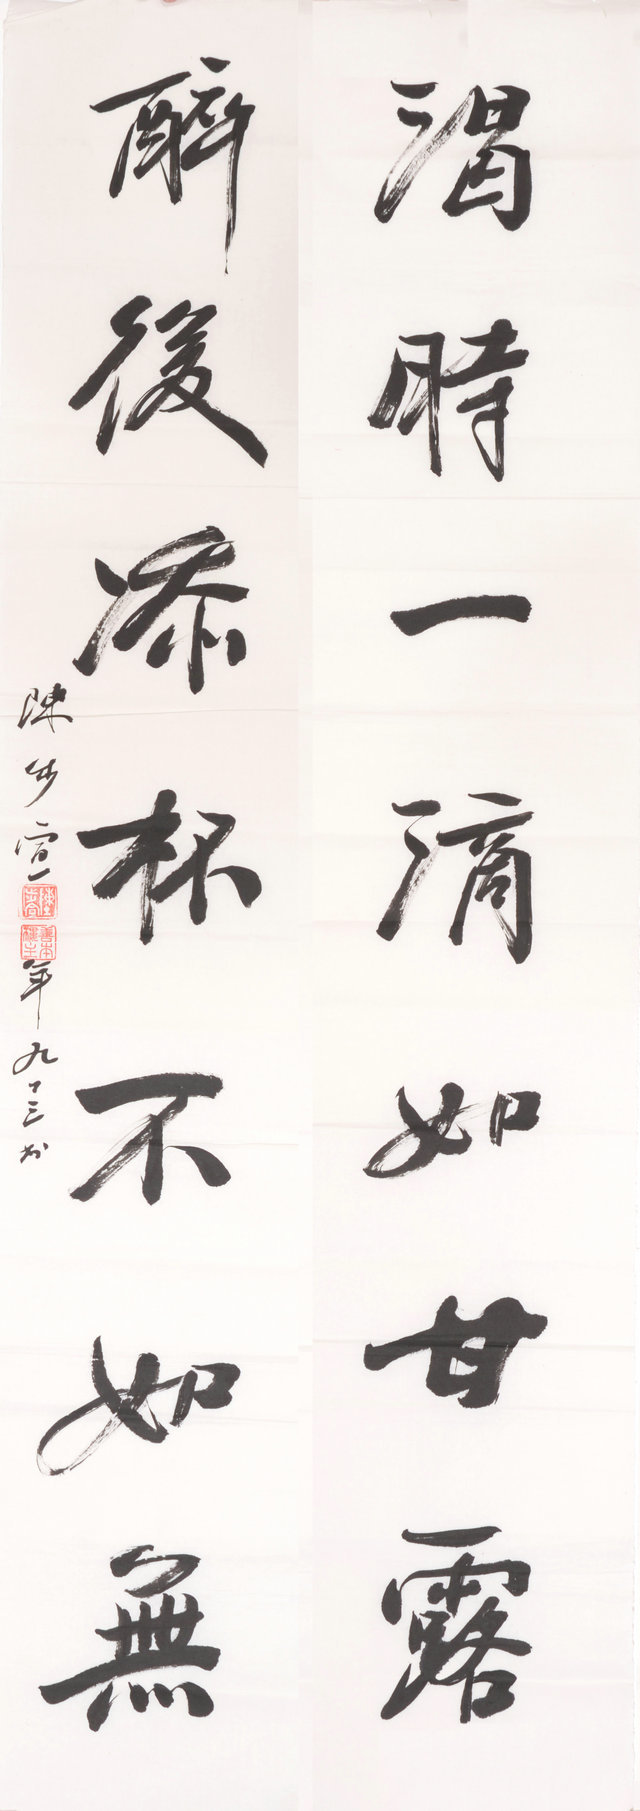 渴時一滴如甘露
醉後添杯不如無
陳步雲
年九十三书